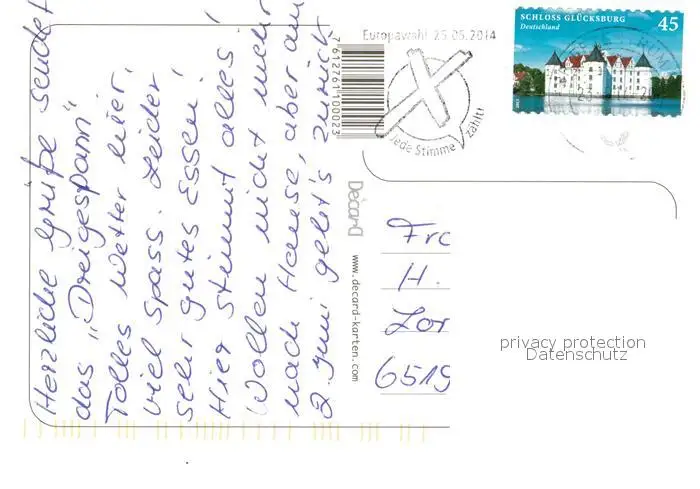 Herzliche Grüße sendet
das „Dreigespann".
Tolles Wetter hier,
viel Spass. Leider,
sehr gutes Essen!
Hier stimmt alles!
Wollen nicht mehr
nach Hause, aber am
2. Juni geht's zurück
Europawahl 25.05.2014
Jede Stimme zählt!
7612761100023
SCHLOSS GLÜCKSBURG
Deutschland
45
Décard
www.decard-karten.com
H.
6519
privacy protection
Datenschutz